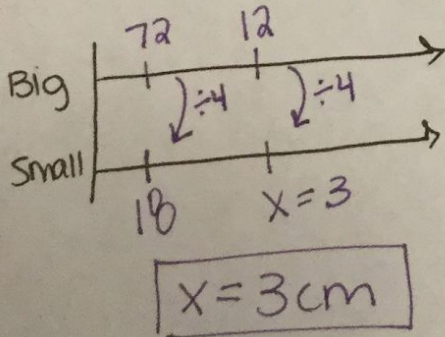 72 12
Big ÷4 ÷4
Small
18 x = 3
x = 3cm